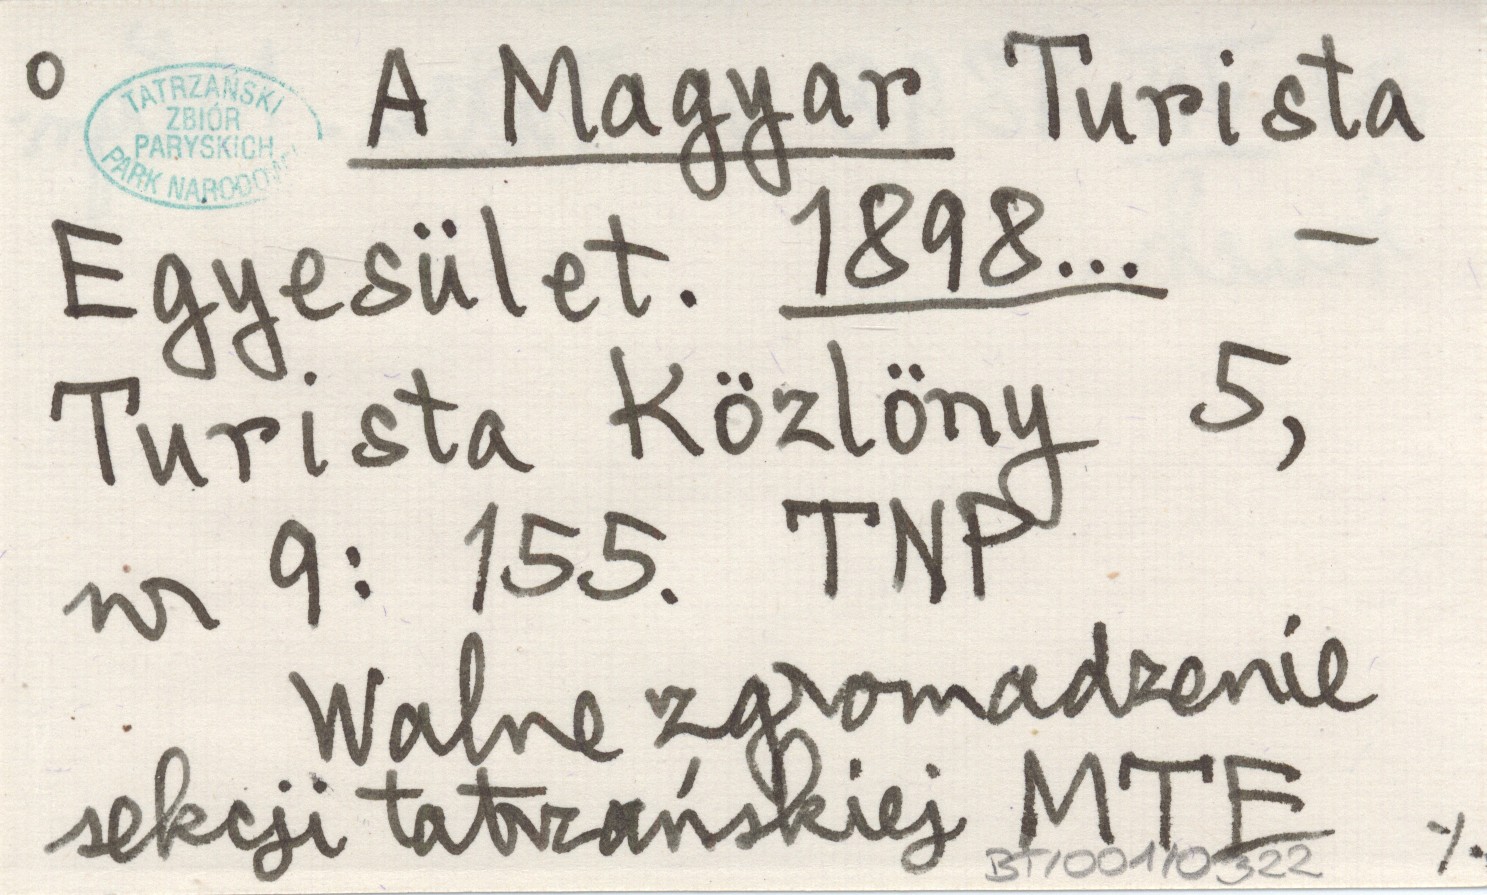 o A Magyar Turista
TATRZAŃSKI
ZBIÓR
PARYSKICH
PARK NARODOWY
Egyesület. 1898... —
Turista Közlöny 5,
nr 9: 155. TNP
Walne zgromadzenie
sekcji tatrzańskiej MTE
BT/001/0322
./.